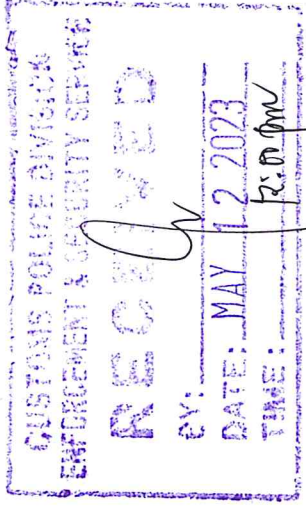 CUSTOMS POLICE DIVISION
ENFORCEMENT & SECURITY SERVICE
RECEIVED
BY:
DATE: MAY 12 2023
TIME: 12:00 pm